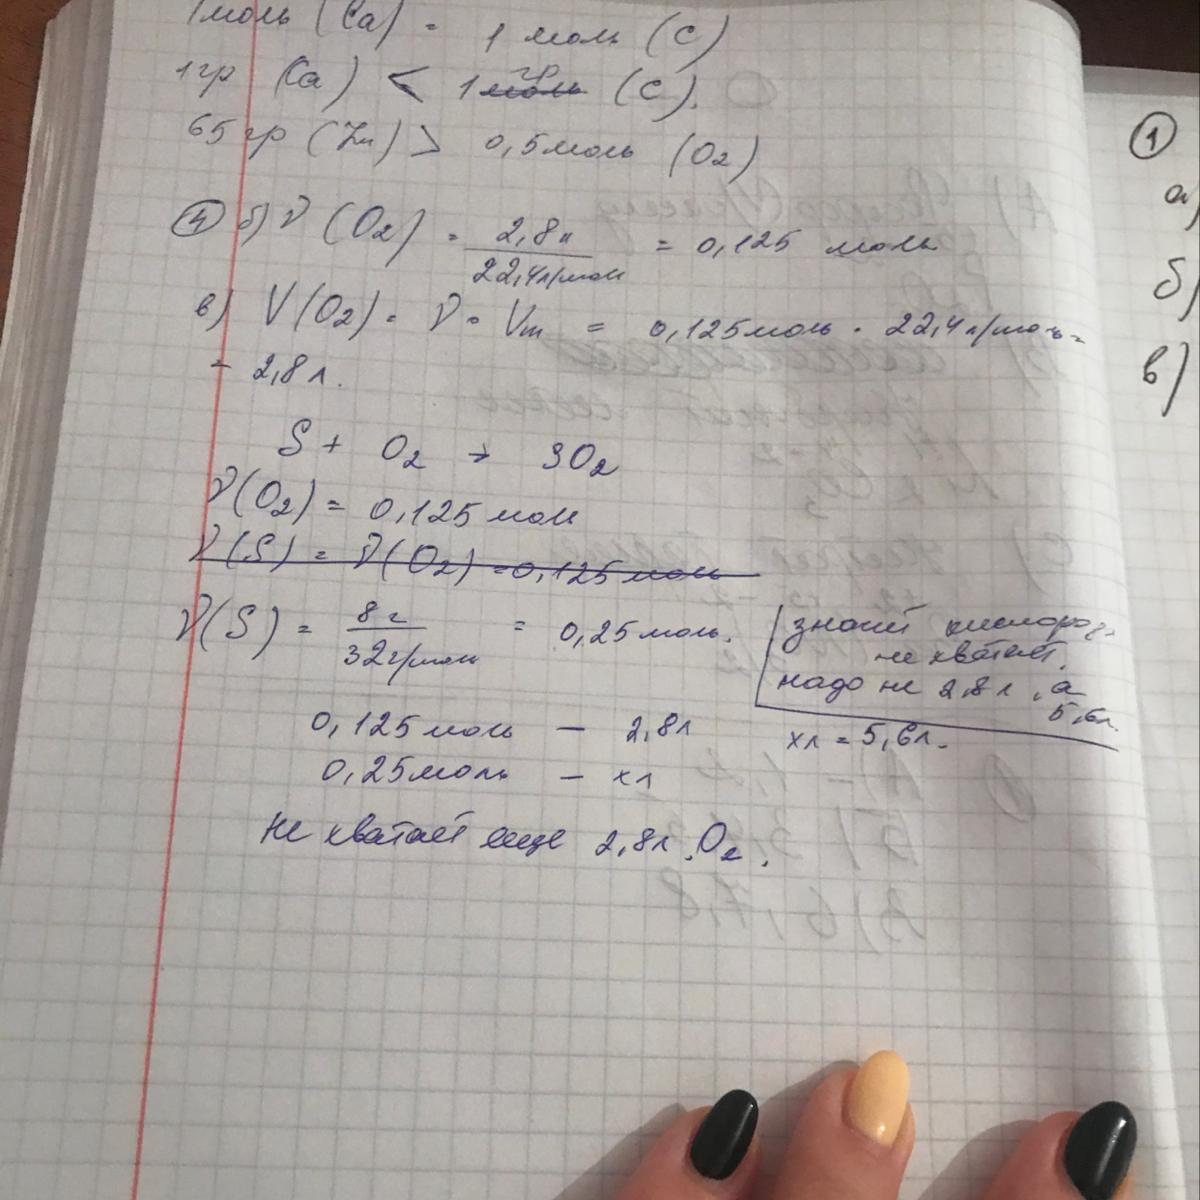 1 моль (Ca) = 1 моль (C)
1 гр (Ca) < 1 гр (C).
65 гр (Zn) > 0,5 моль (O2)
④ б) ν (O2) = 2,8 л / 22,4 л/мол = 0,125 моль
в) V(O2) = ν • Vm = 0,125 моль • 22,4 л/моль =
= 2,8 л.
S + O2 → SO2
ν(O2) = 0,125 мол
ν(S) = ν(O2) = 0,125 моль
ν(S) = 8 г / 32 г/мол = 0,25 моль.
значит кислород
не хватает.
надо не 2,8 л, а
5,6 л.
0,125 моль – 2,8 л
0,25 моль – x л
x л = 5,6 л.
Не хватает еще 2,8 л. O2.
①
а)
б)
в)